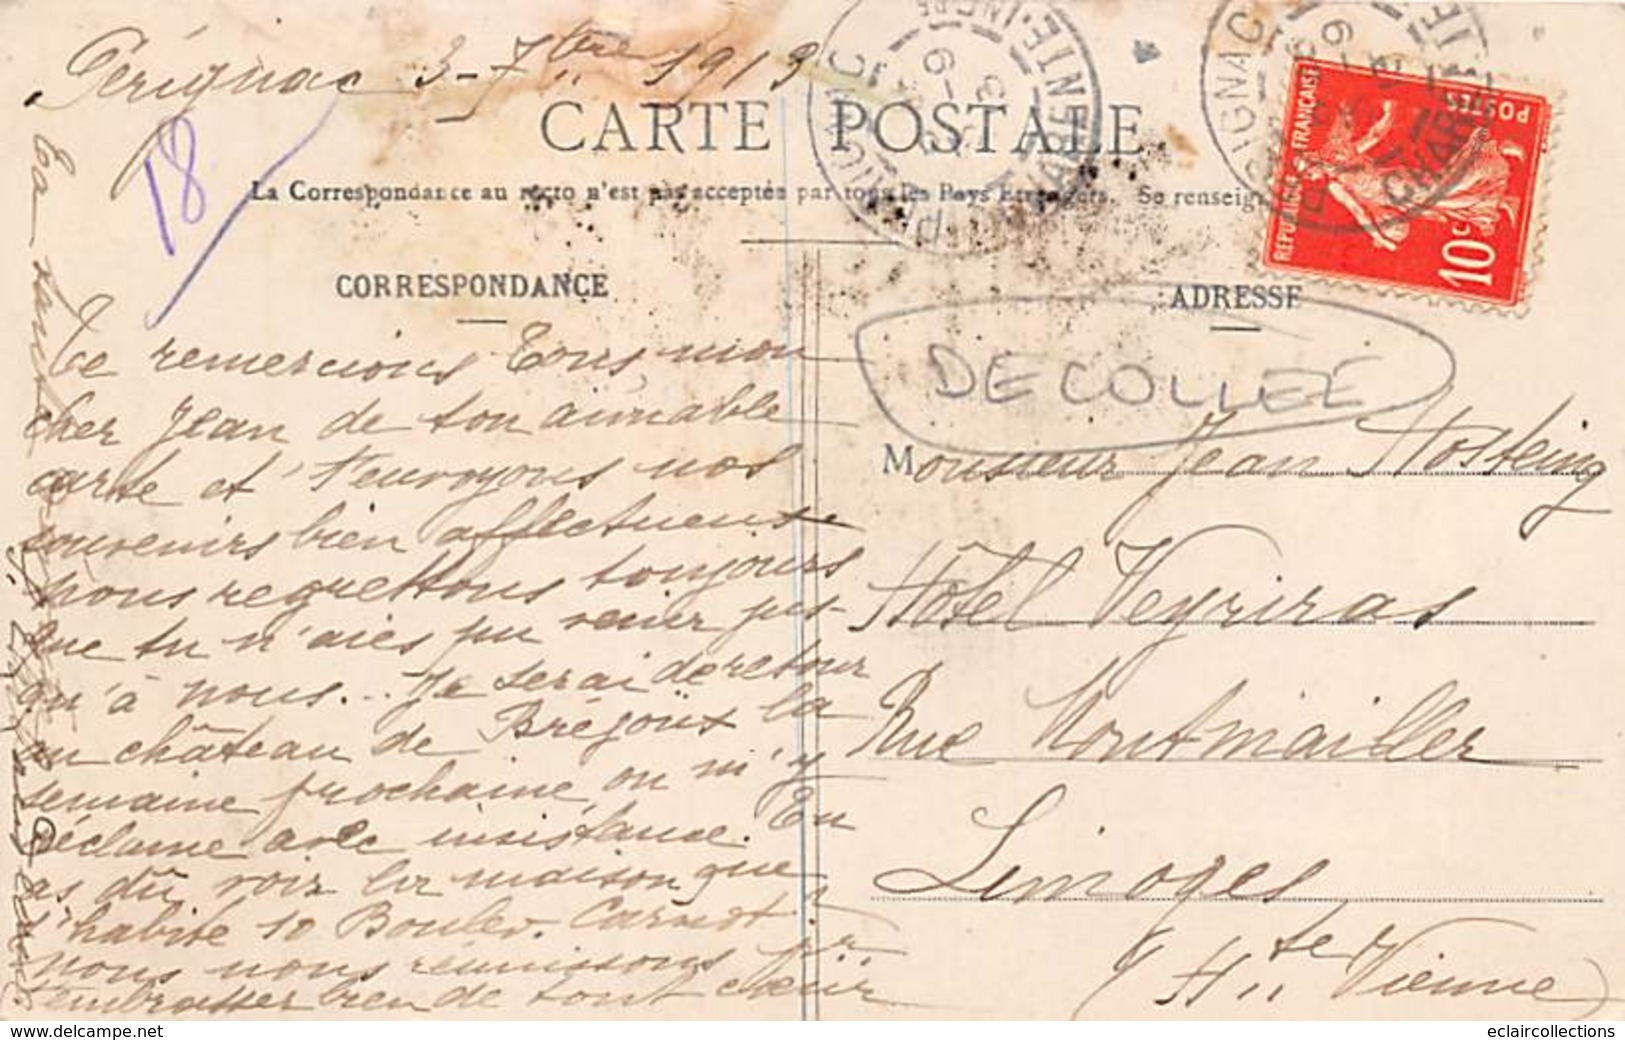 Pérignac 3-7bre 1913
18
CARTE POSTALE
La Correspondance au recto n'est pas acceptée par tous les Pays Etrangers. Se renseig
REPUBLIQUE FRANÇAISE
POSTES
10c
CORRESPONDANCE
ADRESSE
DECOLLEE
Te remercions tous mon
cher Jean de ton aimable
carte et t'envoyons nos
souvenirs bien affectueux
Nous regrettons toujours
que tu n'aies pu venir jus-
qu'à nous... Je serai de retour
au château de Bréjoux la
semaine prochaine, on m'y
réclame avec insistance. Tu
as dû voir la maison que
j'habite 10 Boulev. Carnot
nous nous réunissons pr
t'embrasser bien de tout cœur
Ta tante
Monsieur Jean Hosteing
Hôtel Veyriras
Rue Montmailler
Limoges
(Hte Vienne)
eclaircollections